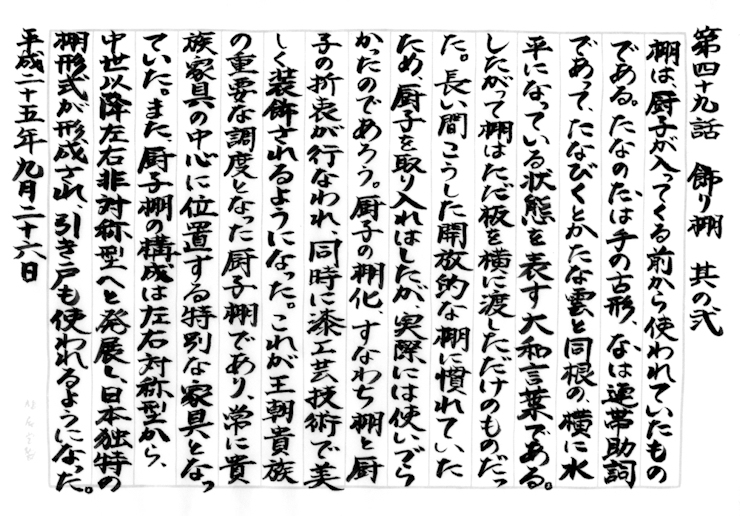 第四十九話　飾り棚　其の弐
棚は、厨子が入ってくる前から使われていたもの
である。たなのたは手の古形、なは連帯助詞
であって、たなびくとかたな雲と同根の、横に水
平になっている状態を表す大和言葉である。
したがって棚はただ板を横に渡しただけのものだっ
た。長い間こうした開放的な棚に慣れていた
ため、厨子を取り入れはしたが、実際には使いづら
かったのであろう。厨子の棚化、すなわち棚と厨
子の折衷が行なわれ、同時に漆工芸技術で美
しく装飾されるようになった。これが王朝貴族
の重要な調度となった厨子棚であり、常に貴
族家具の中心に位置する特別な家具となっ
ていた。また、厨子棚の構成は左右対称型から、
中世以降左右非対称型へと発展し、日本独特の
棚形式が形成され、引き戸も使われるようになった。
平成二十五年九月二十六日